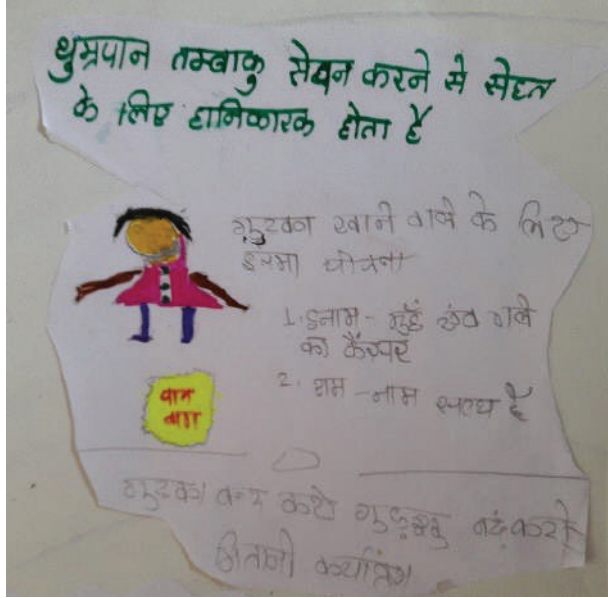 धुम्रपान तम्बाकु सेवन करने से सेहत
के लिए हानिकारक होता है
गुटका खाने वाले के लिए
इनमा योजना
1. इनाम - मुहँ एंव गले
का कैंसर
2. राम - नाम सत्य है
पान
गुटका बन्द करो गुड़ाखु बंद करो